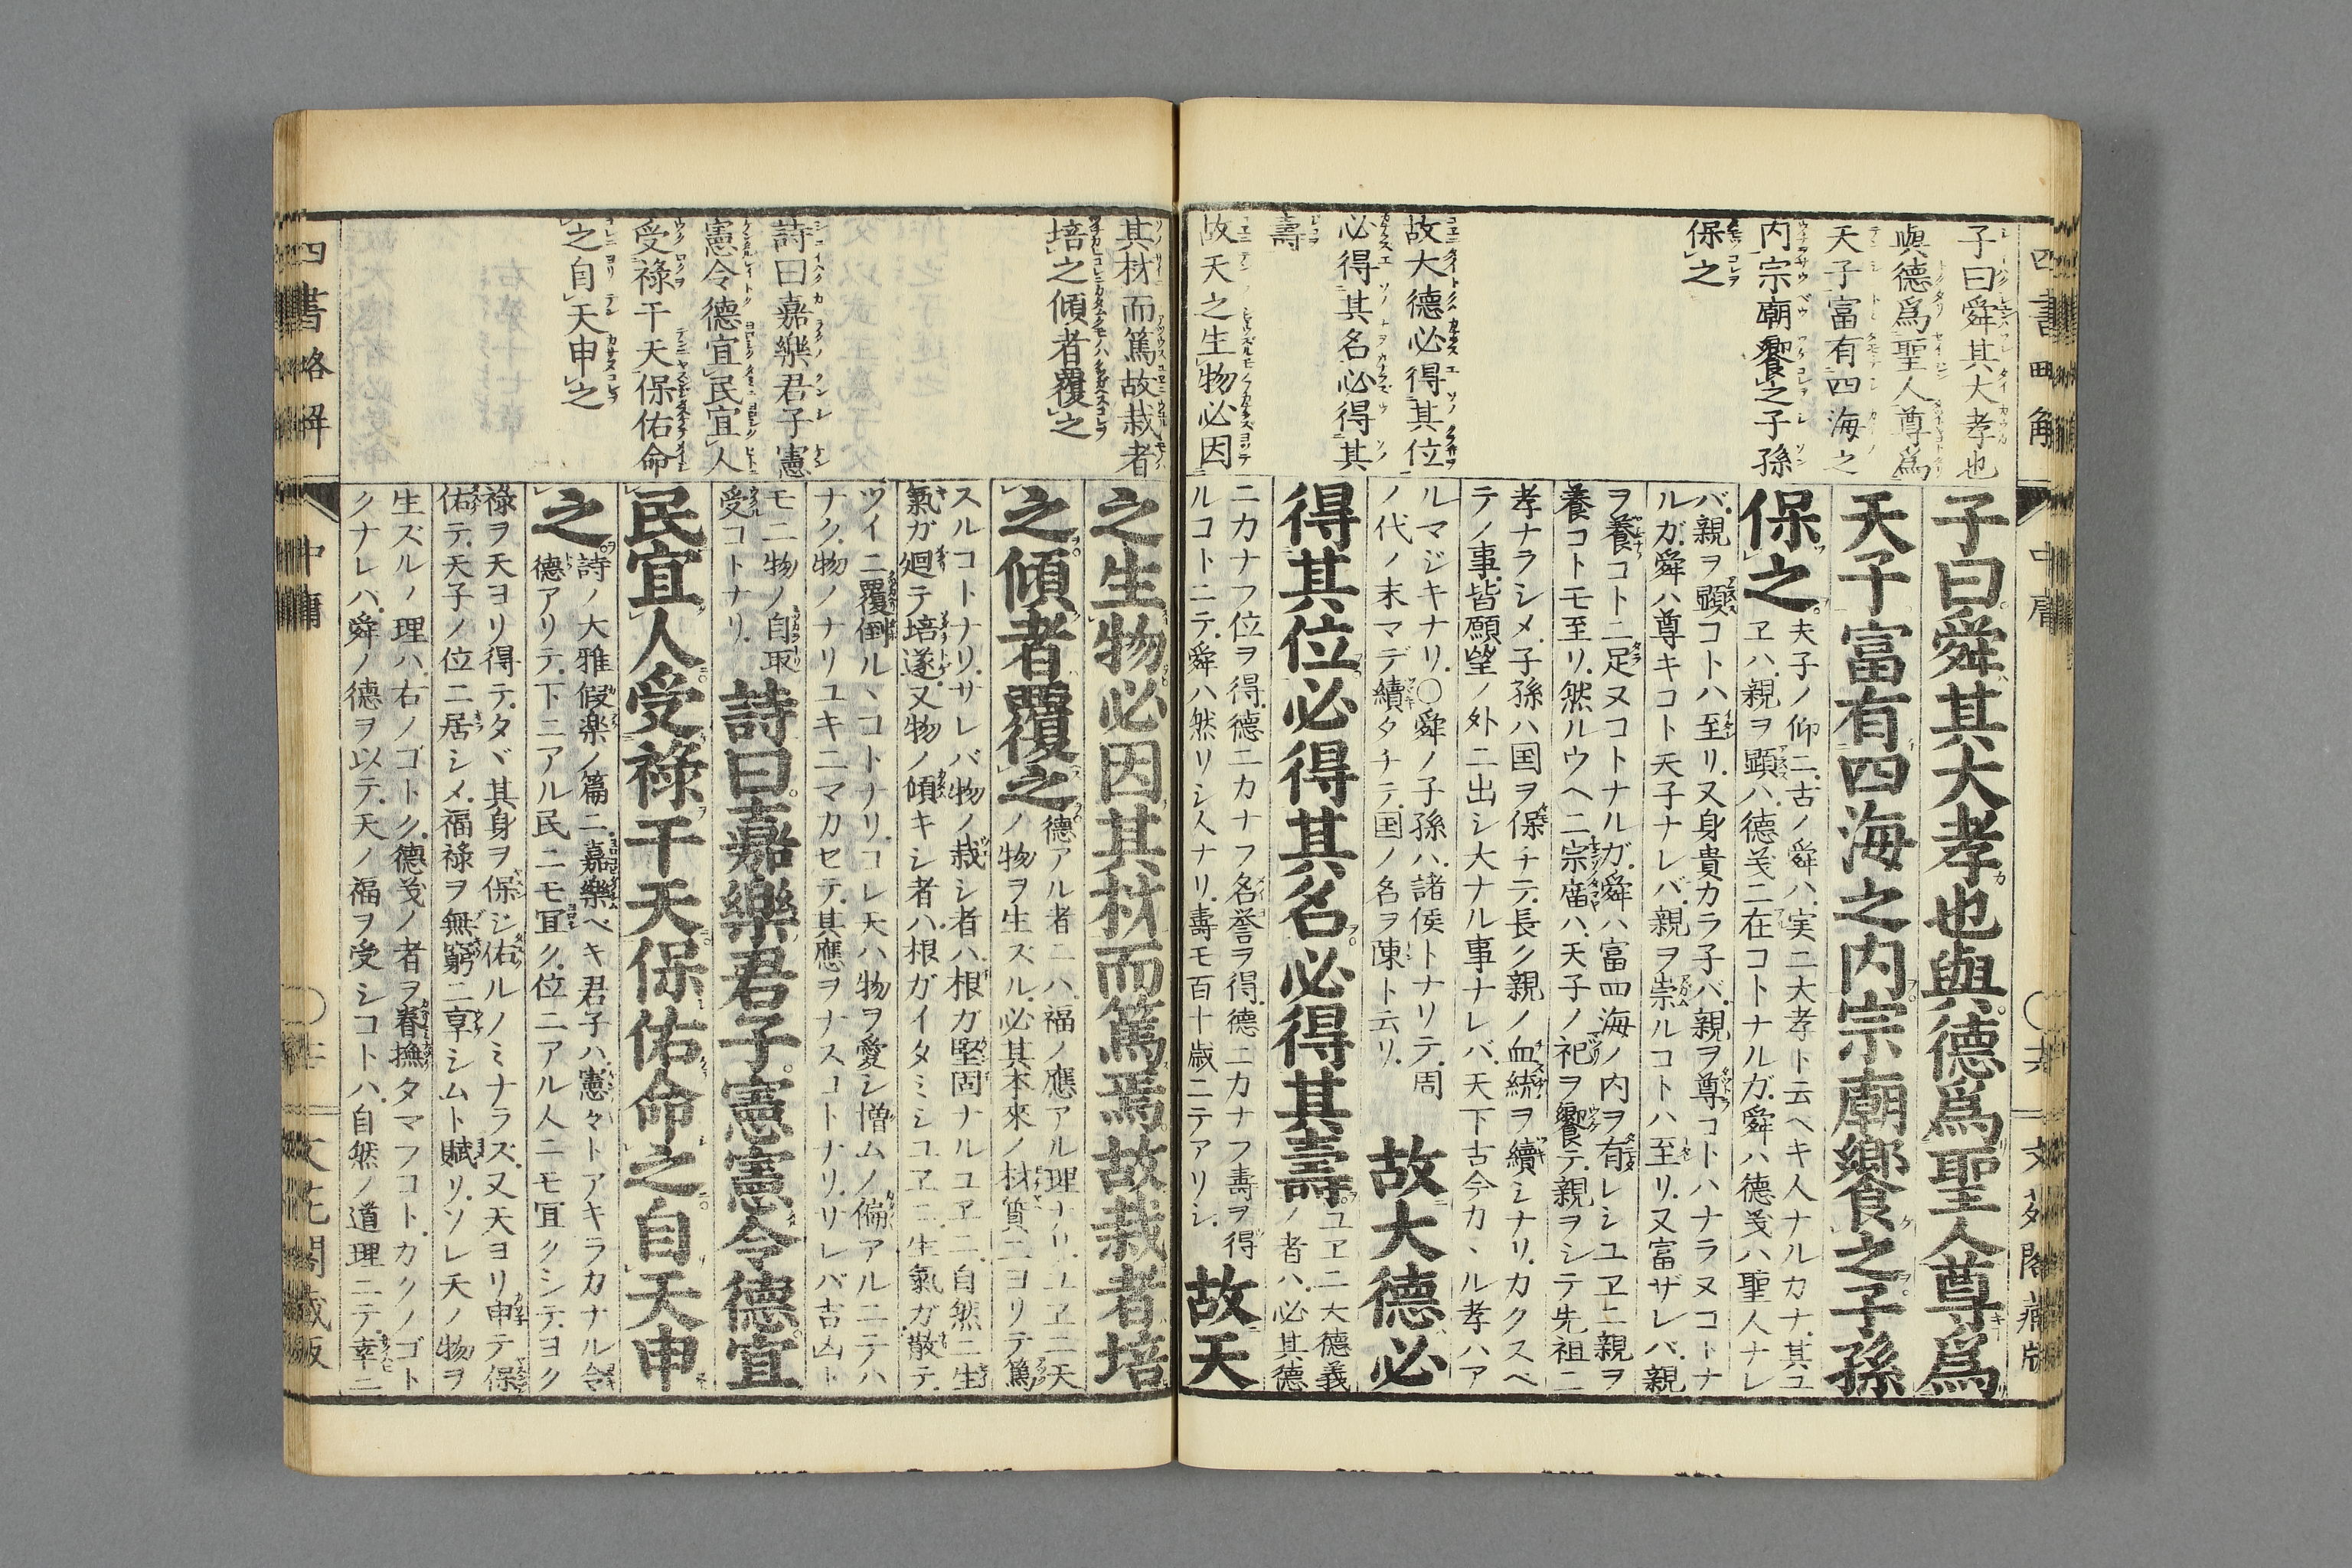 子曰舜其大孝也
與德爲聖人尊爲
天子富有四海之
内宗廟饗之子孫
保之
故大德必得其位
必得其名必得其
壽
故天之生物必因
子曰舜其大孝也與德爲聖人尊爲
天子富有四海之内宗廟饗之子孫
保之
夫子ノ仰ニ古ノ舜ハ実ニ大孝ト云ヘキ人ナルカナ其ユ
ヱハ親ヲ顕ハ德義ニ在コトナルガ舜ハ德義ハ聖人ナレ
バ親ヲ顕コトハ至リ又身貴カラ子バ親ヲ尊コトハナラヌコトナ
ルガ舜ハ尊キコト天子ナレバ親ヲ崇ルコトハ至リ又富ザレバ親
ヲ養コトニ足ヌコトナルガ舜ハ富四海ノ内ヲ有レシユヱニ親ヲ
養コトモ至リ然ルウヘニ宗廟ハ天子ノ祀ヲ饗テ親ヲシテ先祖ニ
孝ナラシメ子孫ハ国ヲ保チテ長ク親ノ血続ヲ續シナリカクスベ
テノ事皆願望ノ外ニ出シ大ナル事ナレバ天下古今カヽル孝ハア
ルマジキナリ〇舜ノ子孫ハ諸侯トナリテ周
ノ代ノ末マデ續タチテ国ノ名ヲ陳ト云リ
故大德必
得其位必得其名必得其壽
ユヱニ大德義
ノ者ハ必其德
ニカナフ位ヲ得德ニカナフ名誉ヲ得德ニカナフ壽ヲ得
ルコトニテ舜ハ然リシ人ナリ壽モ百十歳ニテアリシ
故天
四書略解
中庸
其材而篤故栽者
培之傾者覆之
詩曰嘉樂君子憲
憲令德宜民宜人
受祿干天保佑命
之自天申之
之生物必因其材而篤焉故栽者培
之傾者覆之
德アル者ニハ福ノ應アル理ナリユヱニ天
ノ物ヲ生スル必其本來ノ材質ニヨリテ篤
スルコトナリサレバ物ノ栽シ者ハ根ガ堅固ナルユヱニ自然ニ生
氣ガ廻テ培遂又物ノ傾キシ者ハ根ガイタミシユヱニ生氣ガ散テ
ツイニ覆倒ルヽコトナリコレ天ハ物ヲ愛シ憎ムノ偏アルニテハ
ナク物ノナリユキニマカセテ其應ヲナスコトナリサレバ吉凶ト
モニ物ノ自取
受コトナリ
詩曰嘉樂君子憲憲令德宜
民宜人受祿干天保佑命之自天申
之
詩ノ大雅假楽ノ篇ニ嘉樂ベキ君子ハ憲々トアキラカナル令
德アリテ下ニアル民ニモ宜ク位ニアル人ニモ宜クシテヨク
祿ヲ天ヨリ得テタヾ其身ヲ保シ佑ルノミナラス又天ヨリ申テ保
佑テ天子ノ位ニ居シメ福祿ヲ無窮ニ享シムト賦リソレ天ノ物ヲ
生ズルノ理ハ右ノゴトク德義ノ者ヲ眷撫タマフコトカクノゴト
クナレハ舜ノ德ヲ以テ天ノ福ヲ受シコトハ自然ノ道理ニテ幸ニ
四書略解
中庸
文花閣蔵板